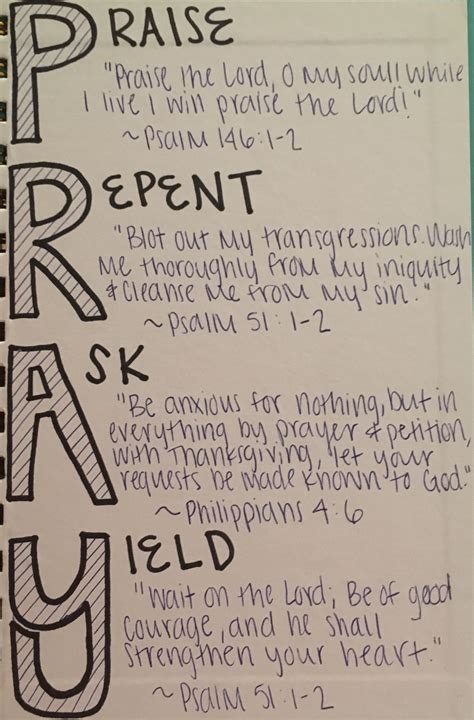 PRAISE
"Praise the Lord, O my soul! While
I live I will praise the Lord!"
~Psalm 146:1-2
REPENT
"Blot out my transgressions. Wash
me thoroughly from my iniquity
& cleanse me from my sin."
~Psalm 51:1-2
ASK
"Be anxious for nothing, but in
everything by prayer & petition,
with Thanksgiving, let your
requests be made known to God."
~Philippians 4:6
YIELD
"Wait on the Lord; Be of good
courage, and he shall
strengthen your heart."
~Psalm 51:1-2